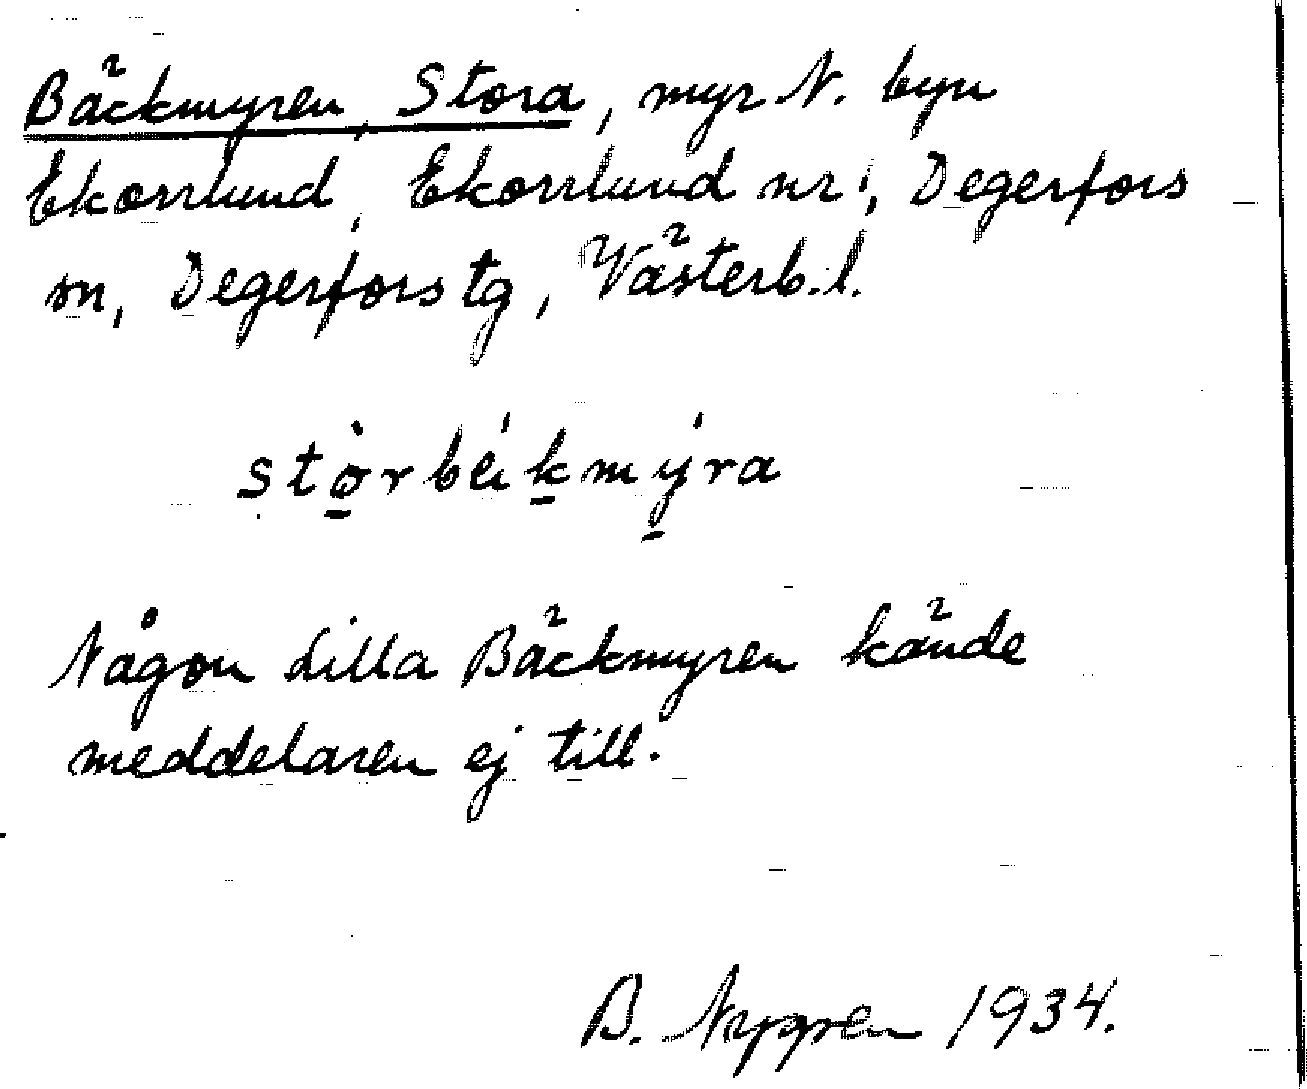 Bäckmyren, Stora, myr N. byn
Ekorrlund, Ekorrlund nr 1, Degerfors
sn, Degerfors tg, Västerb. l.
stò̱rbéiḵmý̱ra
Någon Lilla Bäckmyren kände
meddelaren ej till.
B. Nygren 1934.